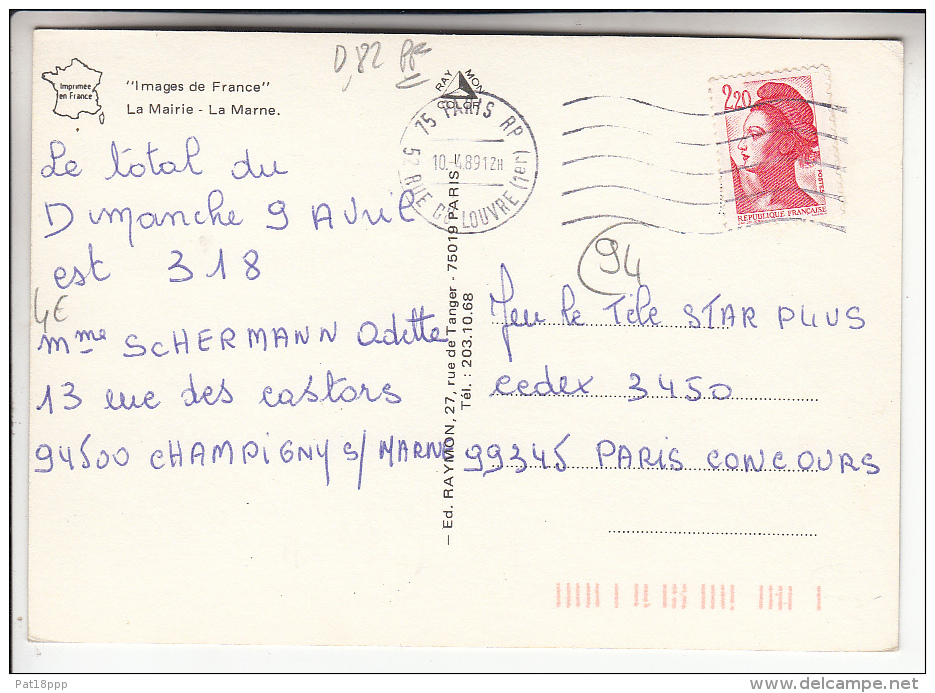 D.82
Imprimée
en France
"Images de France"
La Mairie - La Marne.
RAYMON
COLOR
75 PARIS RP
10.-4.89 12H
52 RUE DU LOUVRE (1er)
2,20
POSTES
REPUBLIQUE FRANCAISE
Le total du
Dimanche 9 Avril
est 318
4€
Mme SCHERMANN Odette
13 rue des castors
94500 CHAMPIGNY S/ MARNE
— Ed. RAYMON, 27, rue de Tanger - 75019 PARIS
Tél. : 203.10.68
94
Jeu le Télé STAR PLUS
cedex 3450
99345 PARIS CONCOURS
Pat18ppp
delcampe.net